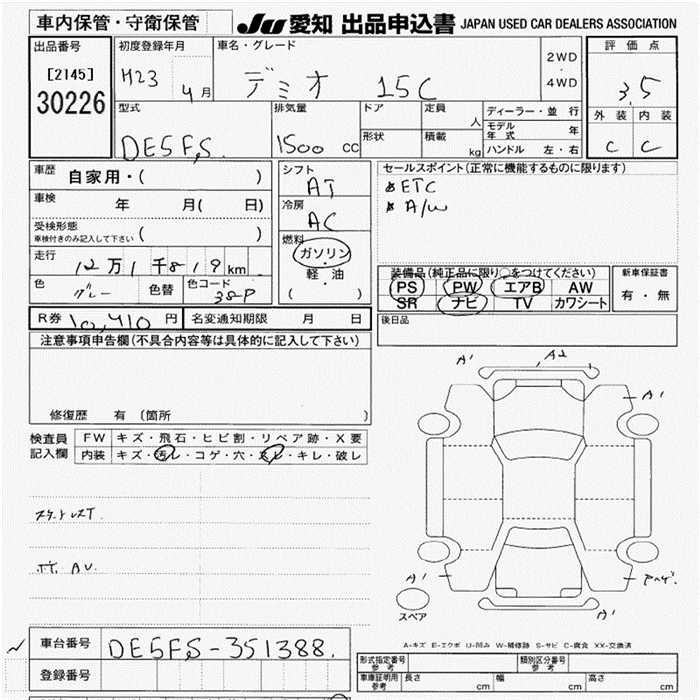 車内保管・守衛保管 JU 愛知 出品申込書 JAPAN USED CAR DEALERS ASSOCIATION
出品番号 初度登録年月 車名・グレード 2WD・4WD 評価点
[2145] H23 4月 デミオ 15C 3.5
30226 型式 排気量 ドア 定員 人 ディーラー・並行 外装 内装
DE5FS 1500 cc 形状 積載 kg モデル年式 年 C C
ハンドル 左・右
車歴 自家用・( ) シフト AT セールスポイント(正常に機能するものに限ります)
車検 年 月( 日) 冷房 AC ETC
受検形態 A/W
車検付きのみ記入して下さい ( ) 燃料
走行 12万1千819km ガソリン・軽油 装備品(純正品に限り○をつけてください) 新車保証書
色 グレー 色替 色コード 38P ( ) PS PW エアB AW 有・無
SR ナビ TV カワシート
R券 10,410円 名変通知期限 月 日 後日品
注意事項申告欄(不具合内容等は具体的に記入して下さい)
A' A2
A'
修復歴 有 (箇所 )
検査員 FW キズ・飛石・ヒビ割・リペア跡・X要
記入欄 内装 キズ・汚レ・コゲ・穴・スレ・キレ・破レ
AV
A'
スペア A'
A-キズ E-エクボ U-凹み W-補修跡 S-サビ C-腐食 XX-交換済
車台番号 DE5FS-351388
登録番号
形式指定番号 参考 類別区分番号 参考
車庫証明用 参考 長さ cm 幅 cm 高さ cm